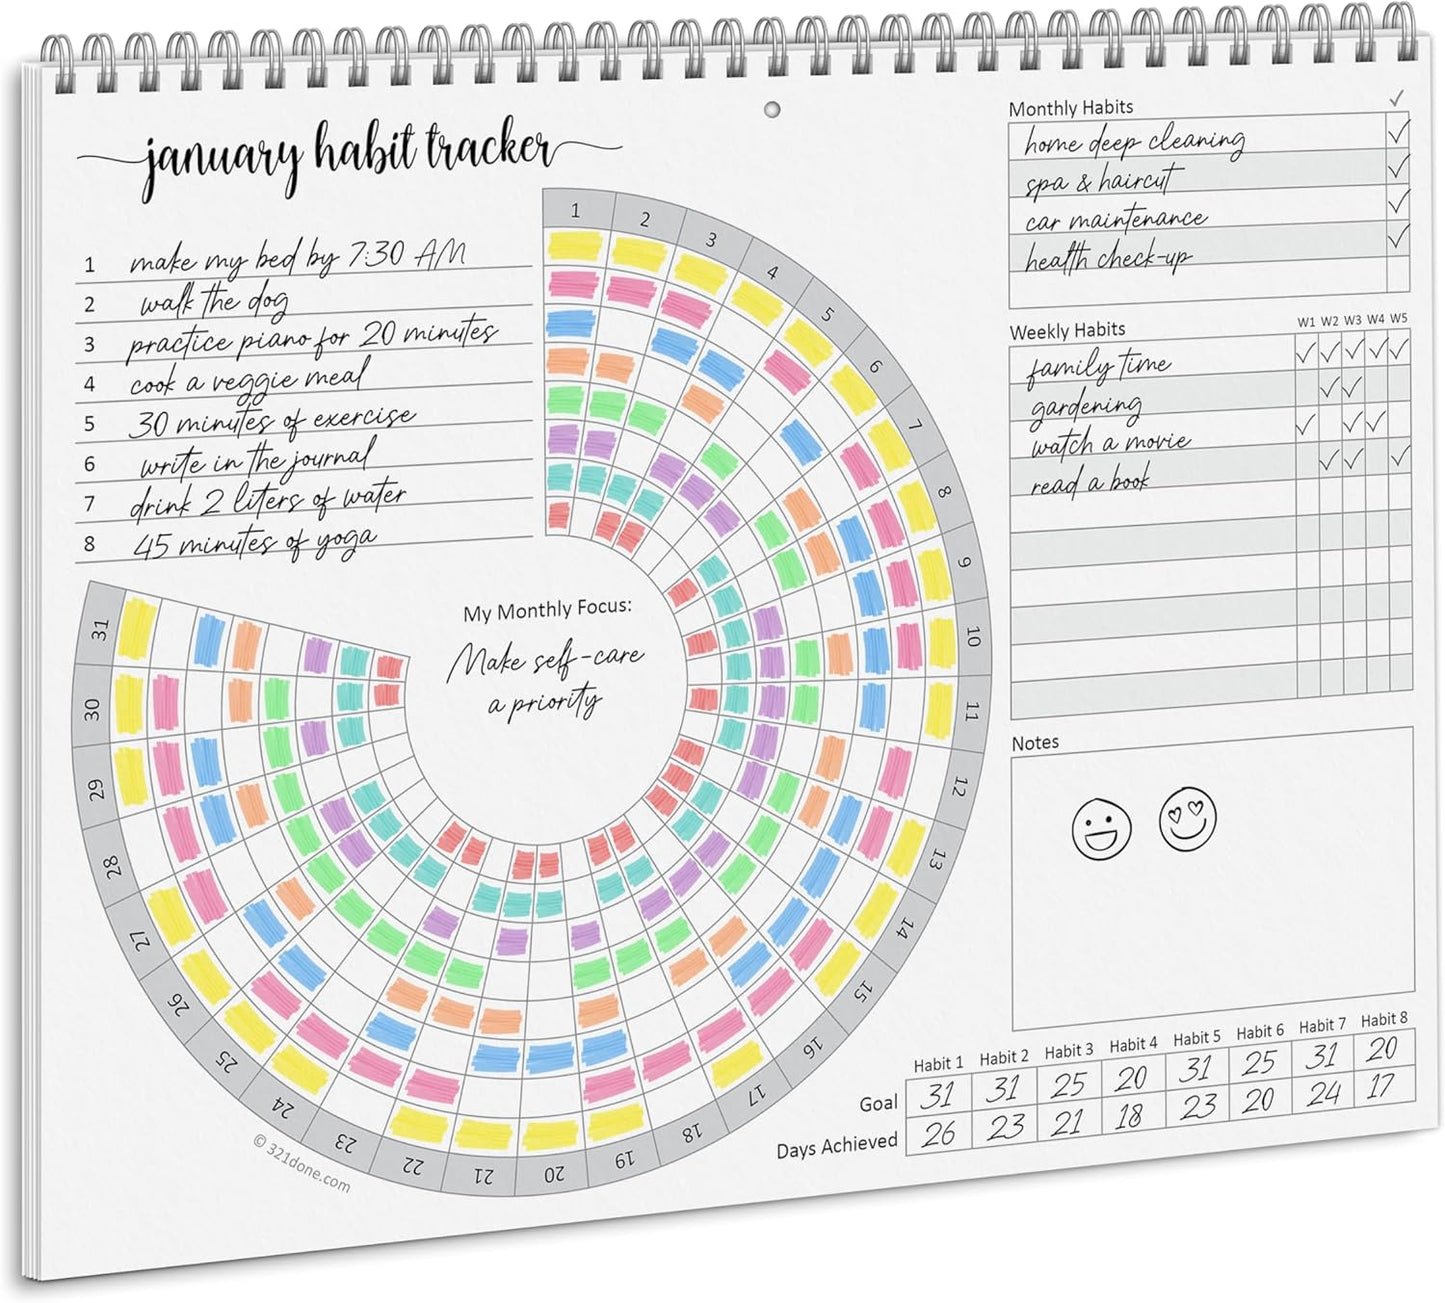 january habit tracker
1 make my bed by 7:30 AM
2 walk the dog
3 practice piano for 20 minutes
4 cook a veggie meal
5 30 minutes of exercise
6 write in the journal
7 drink 2 liters of water
8 45 minutes of yoga
1
2
3
4
5
6
7
8
9
10
11
12
13
14
15
16
17
18
19
20
21
22
23
24
25
26
27
28
29
30
31
My Monthly Focus:
Make self-care
a priority
© 321done.com
Monthly Habits ✓
home deep cleaning ✓
spa & haircut ✓
car maintenance ✓
health check-up ✓
Weekly Habits W1 W2 W3 W4 W5
family time ✓ ✓ ✓ ✓ ✓
gardening ✓ ✓
watch a movie ✓ ✓ ✓
read a book ✓ ✓ ✓
Notes
Habit 1 Habit 2 Habit 3 Habit 4 Habit 5 Habit 6 Habit 7 Habit 8
Goal 31 31 25 20 31 25 31 20
Days Achieved 26 23 21 18 23 20 24 17